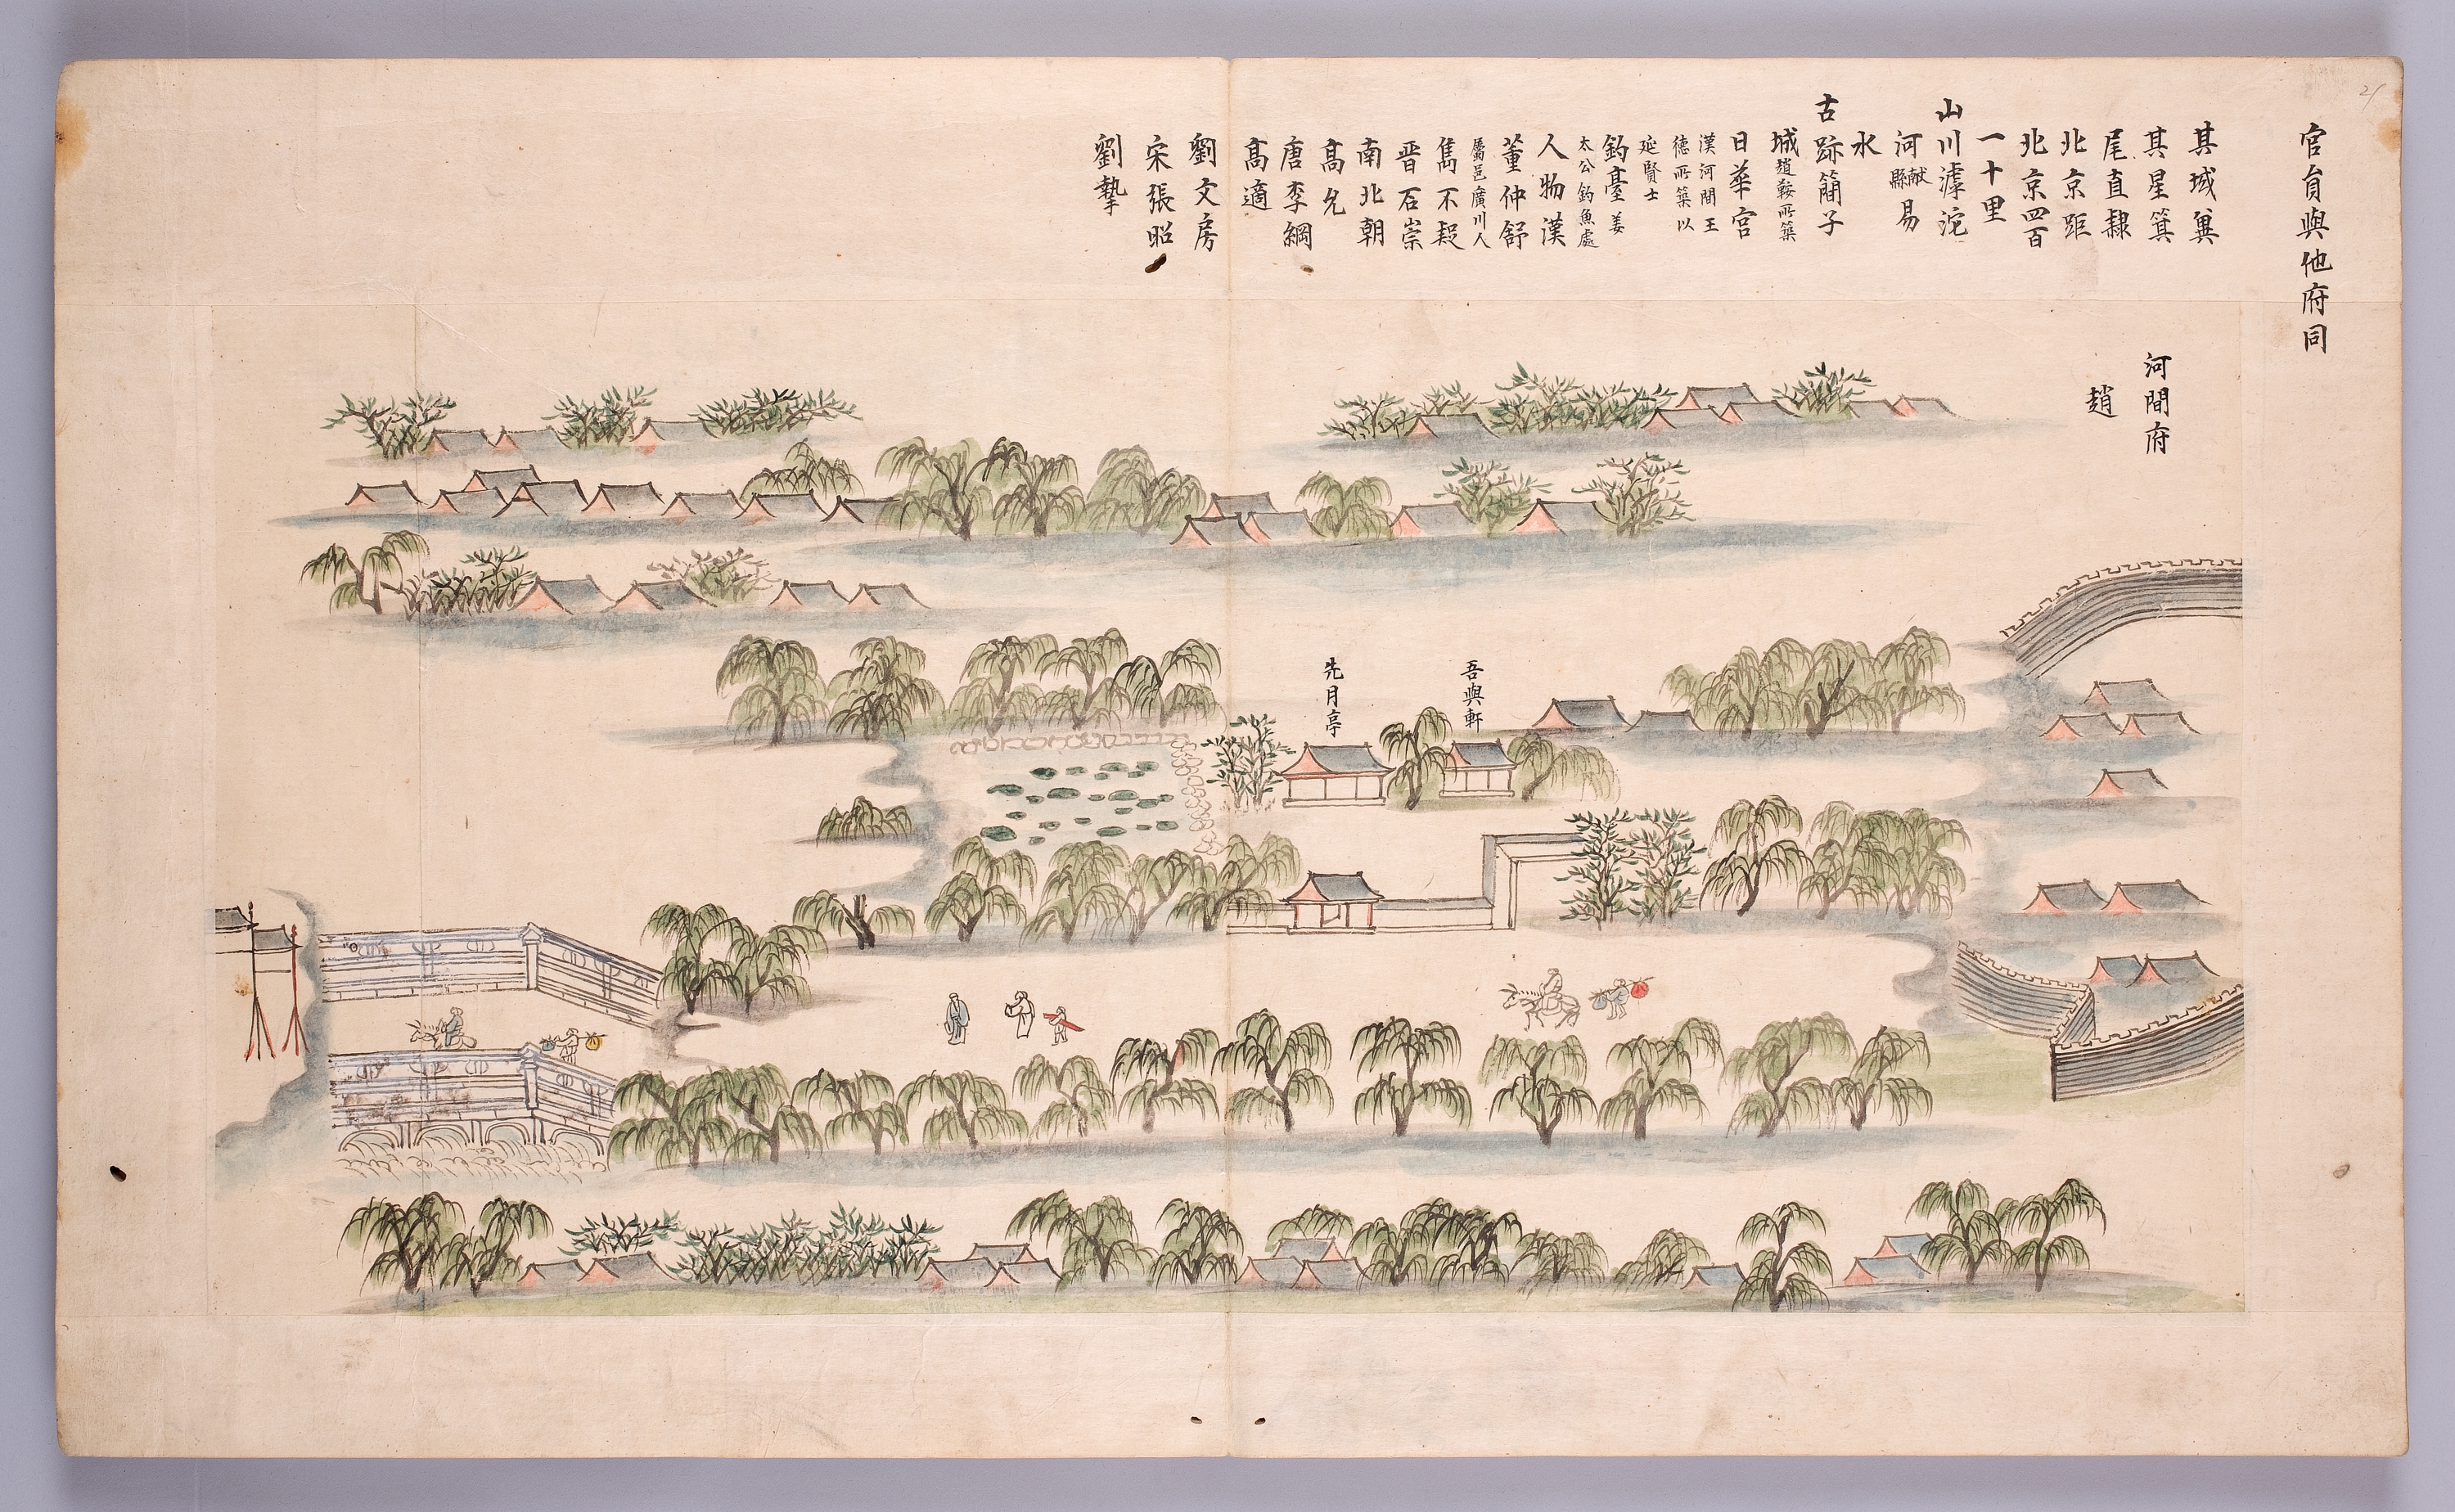 官員與他府同
其域冀
其星箕
尾直隸
北京距
北京四百
一十里
山川滹沱
河獻縣易
水
古跡簡子
城趙鞅所築
日華宮
漢河間王
德所築以
延賢士
釣臺姜
太公釣魚處
人物漢
董仲舒
屬邑廣川人
雋不疑
晋石崇
南北朝
高允
唐李綱
高適
劉文房
宋張昭
劉摯
河間府
趙
吾與軒
先月亭